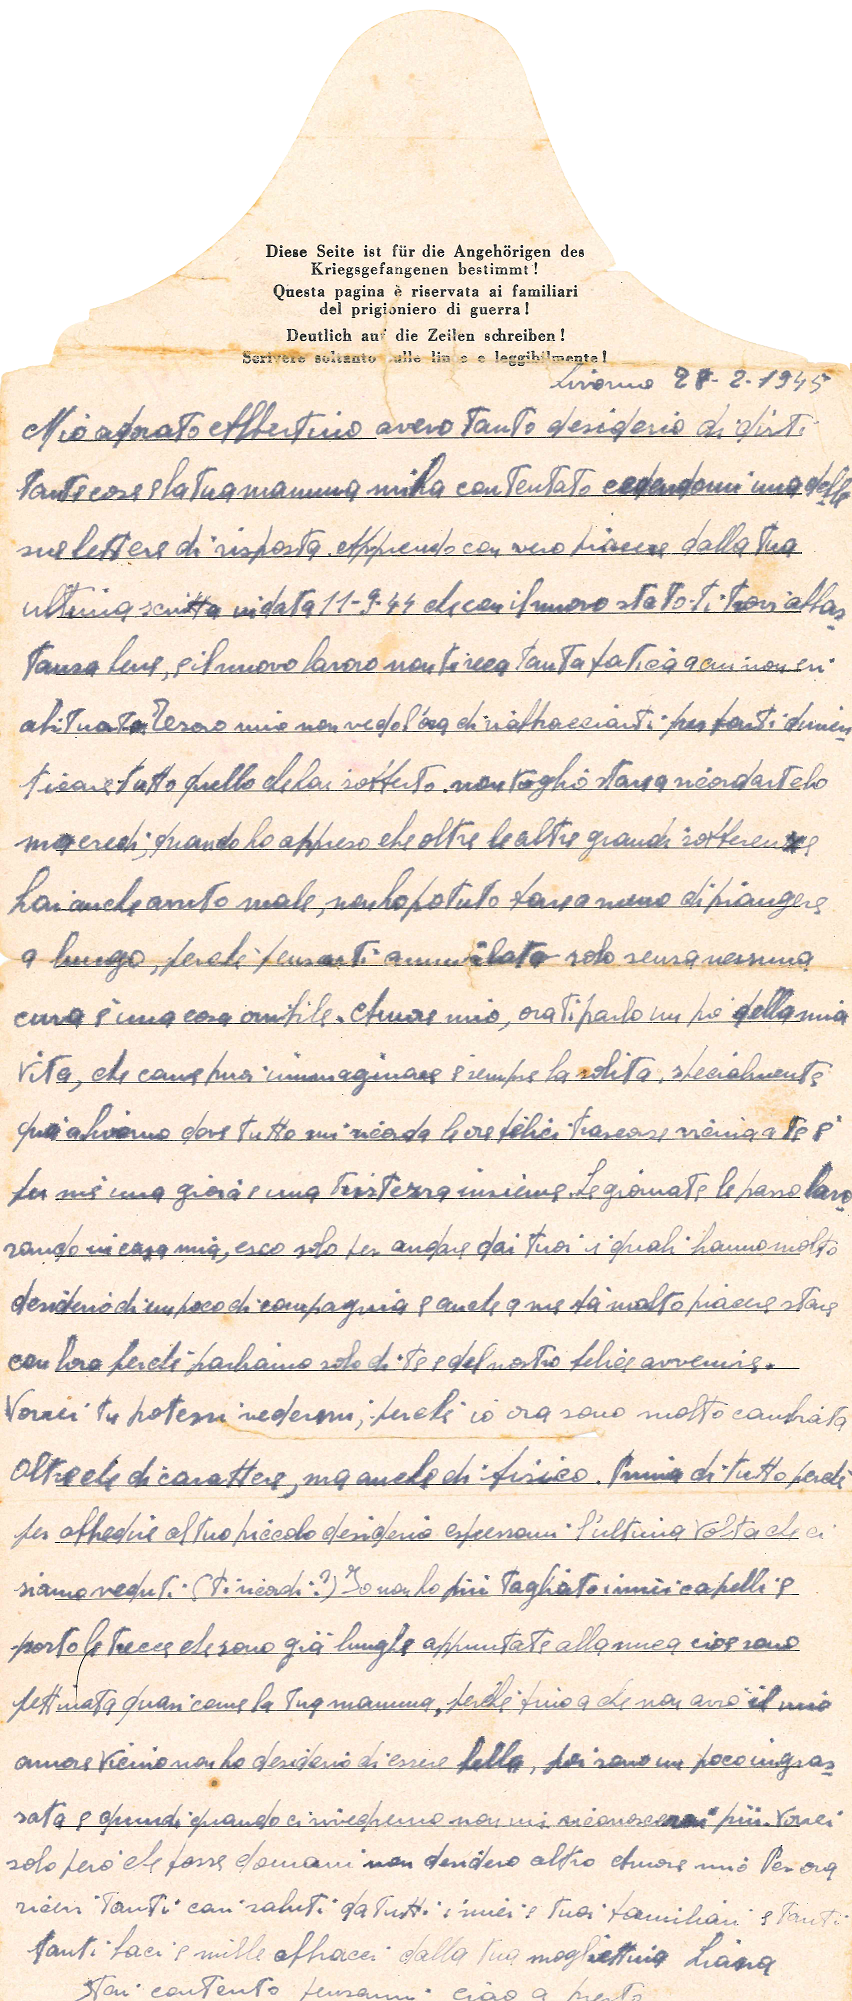 Diese Seite ist für die Angehörigen des
Kriegsgefangenen bestimmt!
Questa pagina è riservata ai familiari
del prigioniero di guerra!
Deutlich auf die Zeilen schreiben!
Scrivere soltanto sulle linee e leggibilmente!
Livorno 27-2-1945
Mio adorato Albertino avevo tanto desiderio di dirti
tante cose e la tua mamma mi ha contentato cedendomi una delle
sue lettere di risposta. Apprendo con vero piacere dalla tua
ultima scritta in data 11-9-44 che con il nuovo stato ti trovi abbas
tanza bene, e il nuovo lavoro non ti reca tanta fatica a cui non eri
abituato. Tesoro mio non vedo l'ora di riabbracciarti per farti dimen
ticare tutto quello che hai sofferto. non voglio stare a ricordartelo
ma credi, quando ho appreso che oltre le altre grandi sofferenze
hai anche avuto male, non ho potuto fare a meno di piangere
a lungo, perché pensarti ammalato solo senza nessuna
cura è una cosa orribile. Amore mio, ora ti parlo un po' della mia
vita, che come puoi immaginare è sempre la solita, specialmente
qui a Livorno dove tutto mi ricorda le ore felici trascorse vicina a te è
per me una gioia e una tristezza insieme. Le giornate le passo lavo
rando in casa mia, esco solo per andare dai tuoi i quali hanno molto
desiderio di un poco di compagnia e anche a me fa molto piacere stare
con loro perché parliamo solo di te e del nostro felice avvenire.
Vorrei tu potessi vedermi, perché io ora sono molto cambiata
oltreché di carattere, ma anche di fisico. Prima di tutto perché
per obbedire al tuo piccolo desiderio espressomi l'ultima volta che ci
siamo veduti (ti ricordi?) Io non ho più tagliato i miei capelli e
porto le trecce che sono già lunghe appuntate alla nuca cioè sono
pettinata quasi come la tua mamma, perché fino a che non avrò il mio
amore vicino non ho desiderio di essere bella, poi sono un poco ingras
sata e quindi quando ci rivedremo non mi riconoscerai più. Vorrei
solo però che fosse domani non desidero altro Amore mio Per ora
ricevi tanti cari saluti da tutti i miei e tuoi familiari e tanti
tanti baci e mille abbracci dalla tua mogliettina Liana
Stai contento pensami ciao a presto